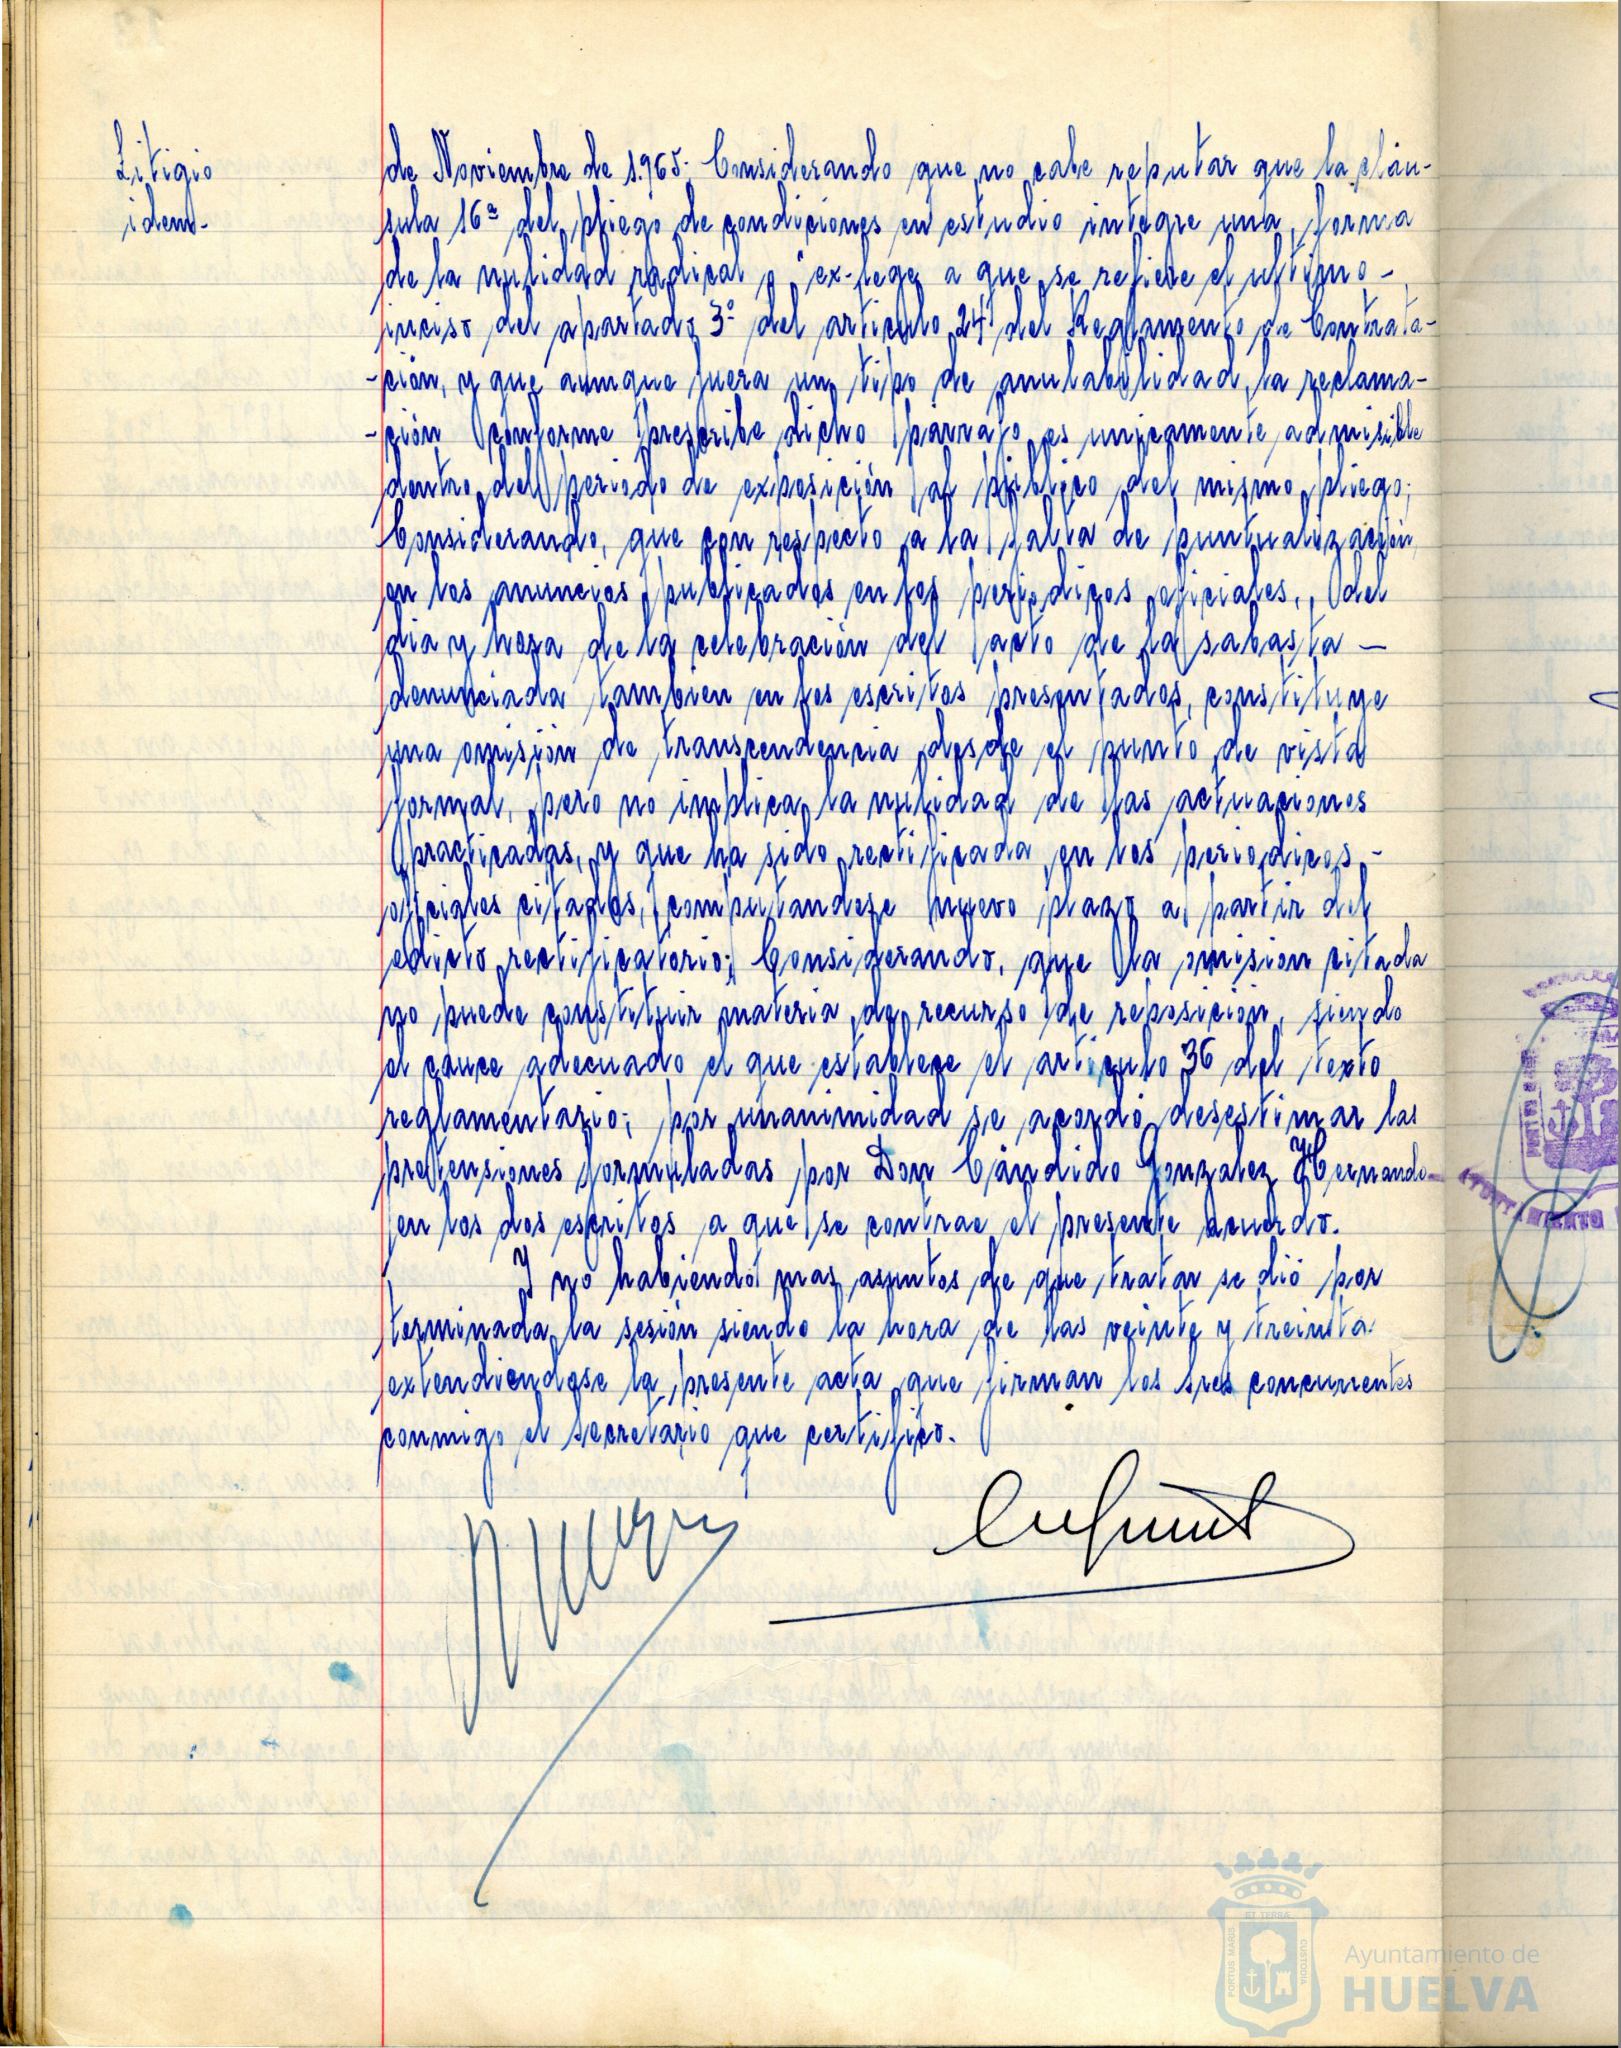 Litigio
idem.
de Noviembre de 1.965; Considerando que no cabe reputar que la cláu-
sula 16ª del pliego de condiciones en estudio integre una forma
de la nulidad radical o "ex-lege a que se refiere el ultimo -
inciso del apartado 3º del articulo 24 del Reglamento de Contrata-
-ción, y que aunque fuera un tipo de anulabilidad, la reclama-
-ción conforme prescribe dicho párrafo es unicamente admisible
dentro del periodo de exposición al público del mismo pliego;
Considerando, que con respecto a la falta de puntualización
en los anuncios publicados en los periodicos oficiales, del
dia y hora de la celebración del acto de la sabasta -
denunciada tambien en los escritos presentados, constituye
una omisión de transcendencia desde el punto de vista
formal, pero no implica la nulidad de las actuaciones
practicadas, y que ha sido rectificada en los periodicos -
oficiales citados, computandose nuevo plazo a partir del
edicto rectificatorio; Considerando, que la omision citada
no puede constituir materia de recurso de reposición, siendo
el cauce adecuado el que establece el articulo 36 del texto
reglamentario; por unanimidad se acordó desestimar las
pretensiones formuladas por Don Cándido Gonzalez Hernando
en los dos escritos a que se contrae el presente acuerdo.
Y no habiendo mas asuntos de que tratar se dió por
terminada la sesión siendo la hora de las veinte y treinta
extendiendose la presente acta que firman los sres concurrentes
conmigo el Secretario que certifico.
AYUNTAMIENTO
PORTUS MARIS
ET TERRÆ
CUSTODIA
Ayuntamiento de
HUELVA